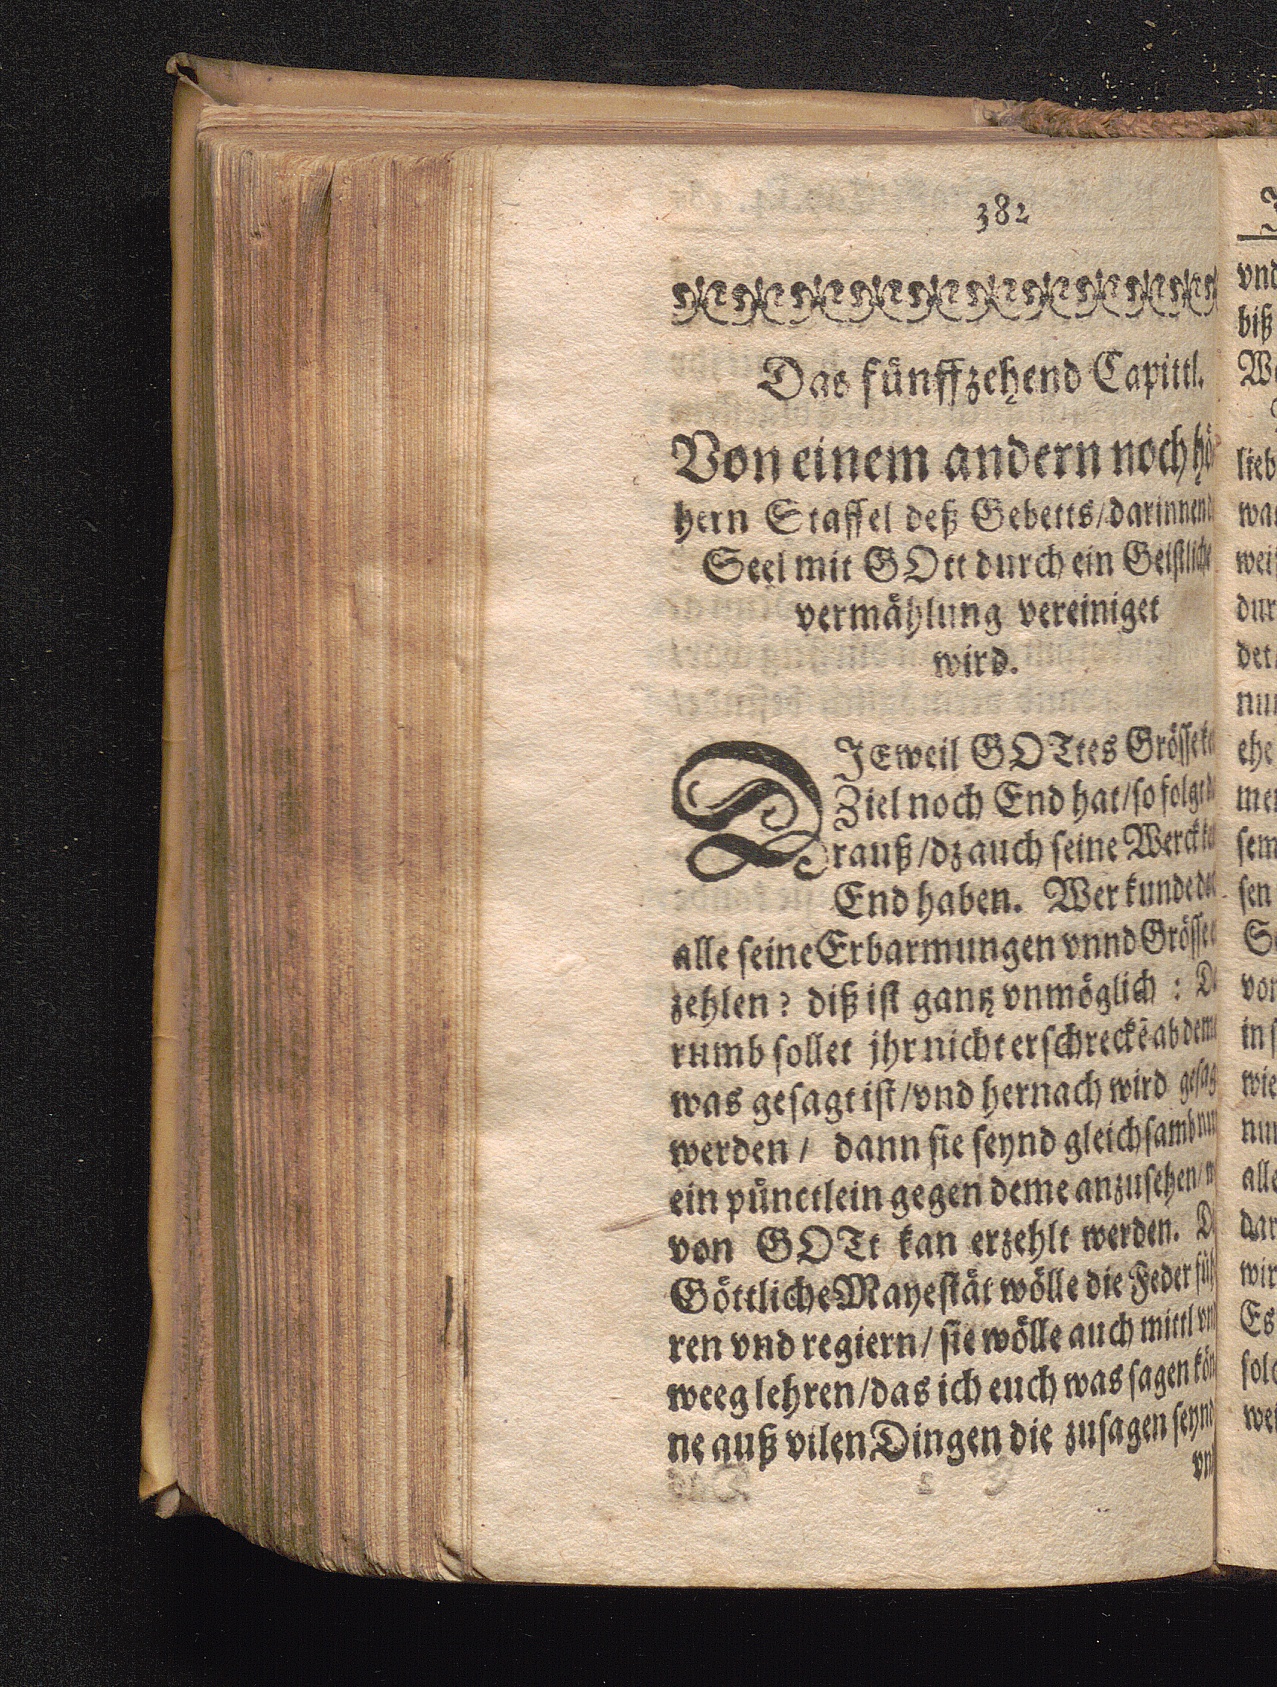 382
Das fünffzehend Capittl.
Von einem andern noch hö
hern Staffel deß Gebetts/darinnen
Seel mit GOtt durch ein Geistliche
vermählung vereiniget
wird.
DIEweil GOTtes Grösse
Ziel noch End hat/so folgt
drauß/dz auch seine Werck
End haben. Wer kunde
alle seine Erbarmungen vnnd Grösse
zehlen? diß ist gantz vnmöglich: Da
rumb sollet jhr nicht erschreckē ab deme
was gesagt ist/vnd hernach wird gesag
werden/ dann sie seynd gleichsamb nur
ein pünctlein gegen deme anzusehen/
von GOTt kan erzehlt werden. Di
Göttliche Mayestät wölle die Feder füh
ren vnd regiern/sie wölle auch mittl vnd
weeg lehren/das ich euch was sagen kön
ne auß vilen Dingen die zusagen seynd
vnd
vnd
biß
We
lieb
wei
dur
det
nun
ehe
sem
sen
von
in s
wie
nun
alle
dar
wir
Es
solc